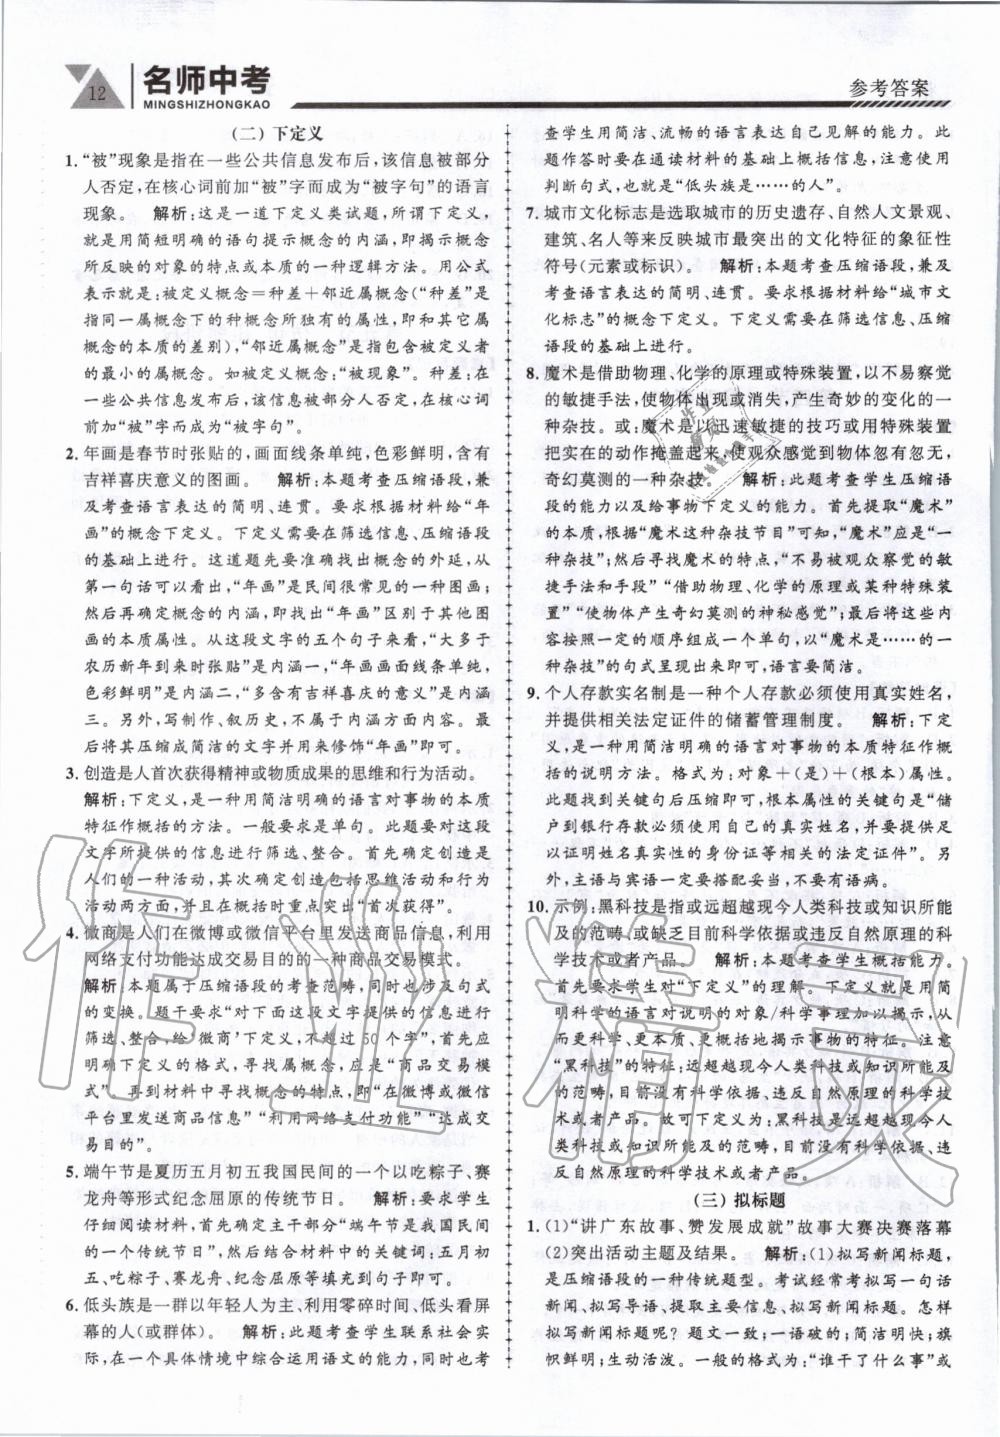 12
名师中考
MINGSHIZHONGKAO
参考答案
(二) 下定义
1. “被”现象是指在一些公共信息发布后,该信息被部分
人否定,在核心词前加“被”字而成为“被字句”的语言
现象。 解析:这是一道下定义类试题,所谓下定义,
就是用简短明确的语句提示概念的内涵,即揭示概念
所反映的对象的特点或本质的一种逻辑方法。用公式
表示就是:被定义概念=种差+邻近属概念(“种差”是
指同一属概念下的种概念所独有的属性,即和其它属
概念的本质的差别),“邻近属概念”是指包含被定义者
的最小的属概念。如被定义概念:“被现象”。种差:在
一些公共信息发布后,该信息被部分人否定,在核心词
前加“被”字而成为“被字句”。
2. 年画是春节时张贴的,画面线条单纯,色彩鲜明,含有
吉祥喜庆意义的图画。 解析:本题考查压缩语段,兼
及考查语言表达的简明、连贯。要求根据材料给“年
画”的概念下定义。下定义需要在筛选信息、压缩语段
的基础上进行。这道题先要准确找出概念的外延,从
第一句话可以看出,“年画”是民间很常见的一种图画;
然后再确定概念的内涵,即找出“年画”区别于其他图
画的本质属性。从这段文字的五个句子来看,“大多于
农历新年到来时张贴”是内涵一,“年画画面线条单纯,
色彩鲜明”是内涵二,“多含有吉祥喜庆的意义”是内涵
三。另外,写制作、叙历史,不属于内涵方面内容。最
后将其压缩成简洁的文字并用来修饰“年画”即可。
3. 创造是人首次获得精神或物质成果的思维和行为活动。
解析:下定义,是一种用简洁明确的语言对事物的本质
特征作概括的方法。一般要求是单句。此题要对这段
文字所提供的信息进行筛选、整合。首先确定创造是
人们的一种活动,其次确定创造包括思维活动和行为
活动两方面,并且在概括时重点突出“首次获得”。
4. 微商是人们在微博或微信平台里发送商品信息,利用
网络支付功能达成交易目的的一种商品交易模式。
解析:本题属于压缩语段的考查范畴,同时也涉及句式
的变换。题干要求“对下面这段文字提供的信息进行
筛选、整合,给‘微商’下定义,不超过50个字”,首先应
明确下定义的格式,寻找属概念,应是“商品交易模
式”,再到材料中寻找概念的特点,即“在微博或微信
平台里发送商品信息”“利用网络支付功能”“达成交
易目的”。
5. 端午节是夏历五月初五我国民间的一个以吃粽子、赛
龙舟等形式纪念屈原的传统节日。 解析:要求学生
仔细阅读材料,首先确定主干部分“端午节是我国民间
的一个传统节日”,然后结合材料中的关键词:五月初
五、吃粽子、赛龙舟、纪念屈原等填充到句子中即可。
6. 低头族是一群以年轻人为主、利用零碎时间、低头看屏
幕的人(或群体)。 解析:此题考查学生联系社会实
际,在一个具体情境中综合运用语文的能力,同时也考
查学生用简洁、流畅的语言表达自己见解的能力。此
题作答时要在通读材料的基础上概括信息,注意使用
判断句式,也就是“低头族是……的人”。
7. 城市文化标志是选取城市的历史遗存、自然人文景观、
建筑、名人等来反映城市最突出的文化特征的象征性
符号(元素或标识)。 解析:本题考查压缩语段,兼及
考查语言表达的简明、连贯。要求根据材料给“城市文
化标志”的概念下定义。下定义需要在筛选信息、压缩
语段的基础上进行。
8. 魔术是借助物理、化学的原理或特殊装置,以不易察觉
的敏捷手法,使物体出现或消失,产生奇妙的变化的一
种杂技。或:魔术是以迅速敏捷的技巧或用特殊装置
把实在的动作掩盖起来,使观众感觉到物体忽有忽无,
奇幻莫测的一种杂技。 解析:此题考查学生压缩语
段的能力以及给事物下定义的能力。首先提取“魔术”
的本质,根据“魔术这种杂技节目”可知,“魔术”应是“一
种杂技”;然后寻找魔术的特点,“不易被观众察觉的敏
捷手法和手段”“借助物理、化学的原理或某种特殊装
置”“使物体产生奇幻莫测的神秘感觉”;最后将这些内
容按照一定的顺序组成一个单句,以“魔术是……的一
种杂技”的句式呈现出来即可,语言要简洁。
9. 个人存款实名制是一种个人存款必须使用真实姓名,
并提供相关法定证件的储蓄管理制度。 解析:下定
义,是一种用简洁明确的语言对事物的本质特征作概
括的说明方法。格式为:对象+(是)+(根本)属性。
此题找到关键句后压缩即可,根本属性的关键句是“储
户到银行存款必须使用自己的真实姓名,并要提供足
以证明姓名真实性的身份证等相关的法定证件”。另
外,主语与宾语一定要搭配妥当,不要有语病。
10. 示例:黑科技是指或远超越现今人类科技或知识所能
及的范畴,或缺乏目前科学依据或违反自然原理的科
学技术或者产品。 解析:本题考查学生概括能力。
首先要求学生对“下定义”的理解。下定义就是用简
明科学的语言对说明的对象/科学事理加以揭示,从
而更科学、更本质、更概括地揭示事物的特征。注意
“黑科技”的特征:远超越现今人类科技或知识所能及
的范畴,目前没有科学依据、违反自然原理的科学技
术或者产品。故可下定义为:黑科技是远超越现今人
类科技或知识所能及的范畴,目前没有科学依据、违
反自然原理的科学技术或者产品。
(三) 拟标题
1. (1)“讲广东故事、赞发展成就”故事大赛决赛落幕
(2)突出活动主题及结果。 解析:(1)拟写新闻标题,
是压缩语段的一种传统题型。考试经常考拟写一句话
新闻、拟写导语、提取主要信息、拟写新闻标题。怎样
拟写新闻标题呢?题文一致;一语破的;简洁明快;旗
帜鲜明;生动活泼。一般的格式为:“谁干了什么事”或
作业精灵